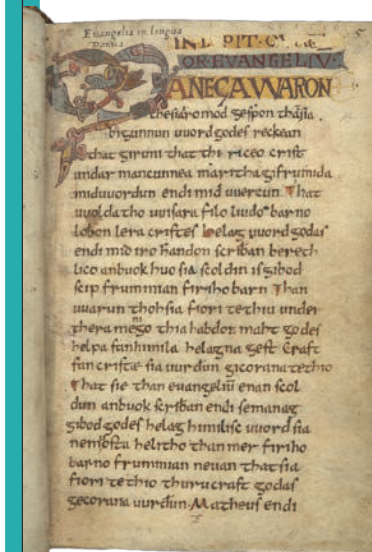 Evangelia in lingua
Danica
OR·EVANGELIV·
ANEGA WARON
thesiaro mod gespon thatsia·
bigunnun uuord godes reckean
that giruni that thi riceo crist
undar mancunnea maritha gifrumida
miduuordun endi mid uuercun That
uuolda tho uuisara filo liudo barno
lobon lera cristes helag uuord godas
endi mid iro handon scriban bereht
lico anbuok huo sia scoldin is gibod
scip frummian firiho barn Than
uuarun thohsia fiori tethiu under
thera menigo thia habdon maht godes
helpa fanhimila helagna gest craft
fan criste sia uurdun gicorana tethio
That sie than euangeliū enan scol
dun anbuok scriban endi semanag
gibod godes helag himilisc uuord sia
nemosta helitho than mer firiho
barno frummian neuan thatsia
fiori tethio thurucraft godas
gecorana uurdun·Matheus endi